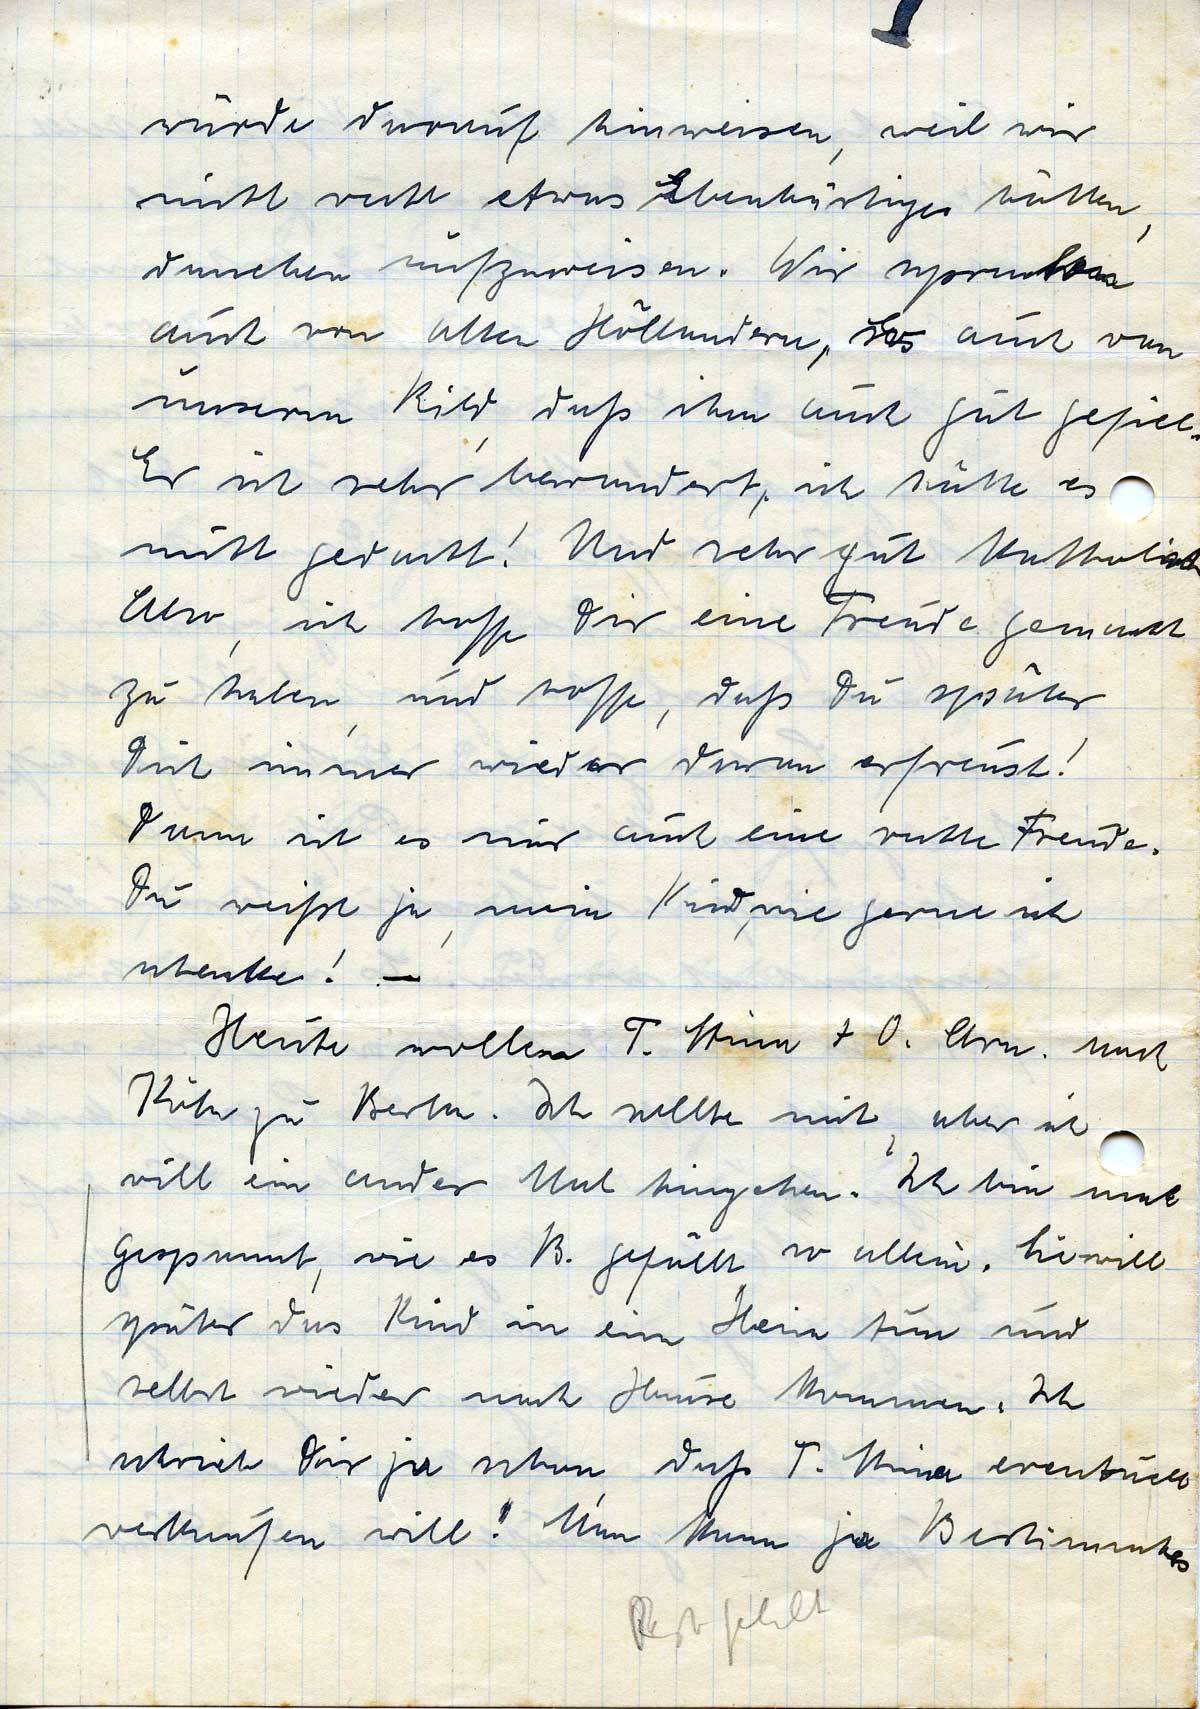 würde darauf hinweisen, weil wir
nicht recht etwas Ebenbürtiges hätten,
daneben aufzuweisen. Wir sprachen
auch von alten Holländern, auch von
unserem Bild, daß ihm auch gut gefiel.
Er ist sehr bewandert, ich hätte es
nicht gedacht! Und sehr gut katholisch
Also, ich hoffe Dir eine Freude gemacht
zu haben, und hoffe, daß Du später
Dich immer wieder daran erfreust!
Dann ist es mir auch eine rechte Freude.
Du weißt ja, mein Kind, wie gerne ich
schenke! —
Heute wollen T. Mina + O. Arn. nach
Köln zu Berta. Ich sollte mit, aber ich
will ein ander Mal hingehen. Ich bin mal
gespannt, wie es B. gefällt so allein. Sie will
später das Kind in ein Heim tun und
selbst wieder nach Hause kommen. Ich
schrieb Dir ja schon, daß T. Mina eventuell
verkaufen will! Man kann ja Bestimmtes
Rest fehlt